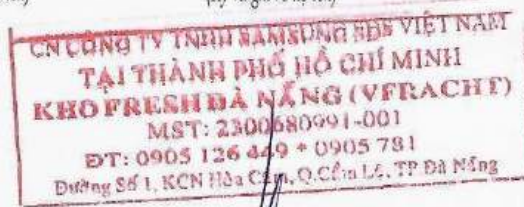 CN CÔNG TY TNHH SAMSUNG SDS VIỆT NAM
TẠI THÀNH PHỐ HỒ CHÍ MINH
KHO FRESH ĐÀ NẴNG (VFRACHT)
MST: 2300680991-001
ĐT: 0905 126 449 * 0905 781
Đường Số 1, KCN Hòa Cầm, Q.Cẩm Lệ, TP Đà Nẵng